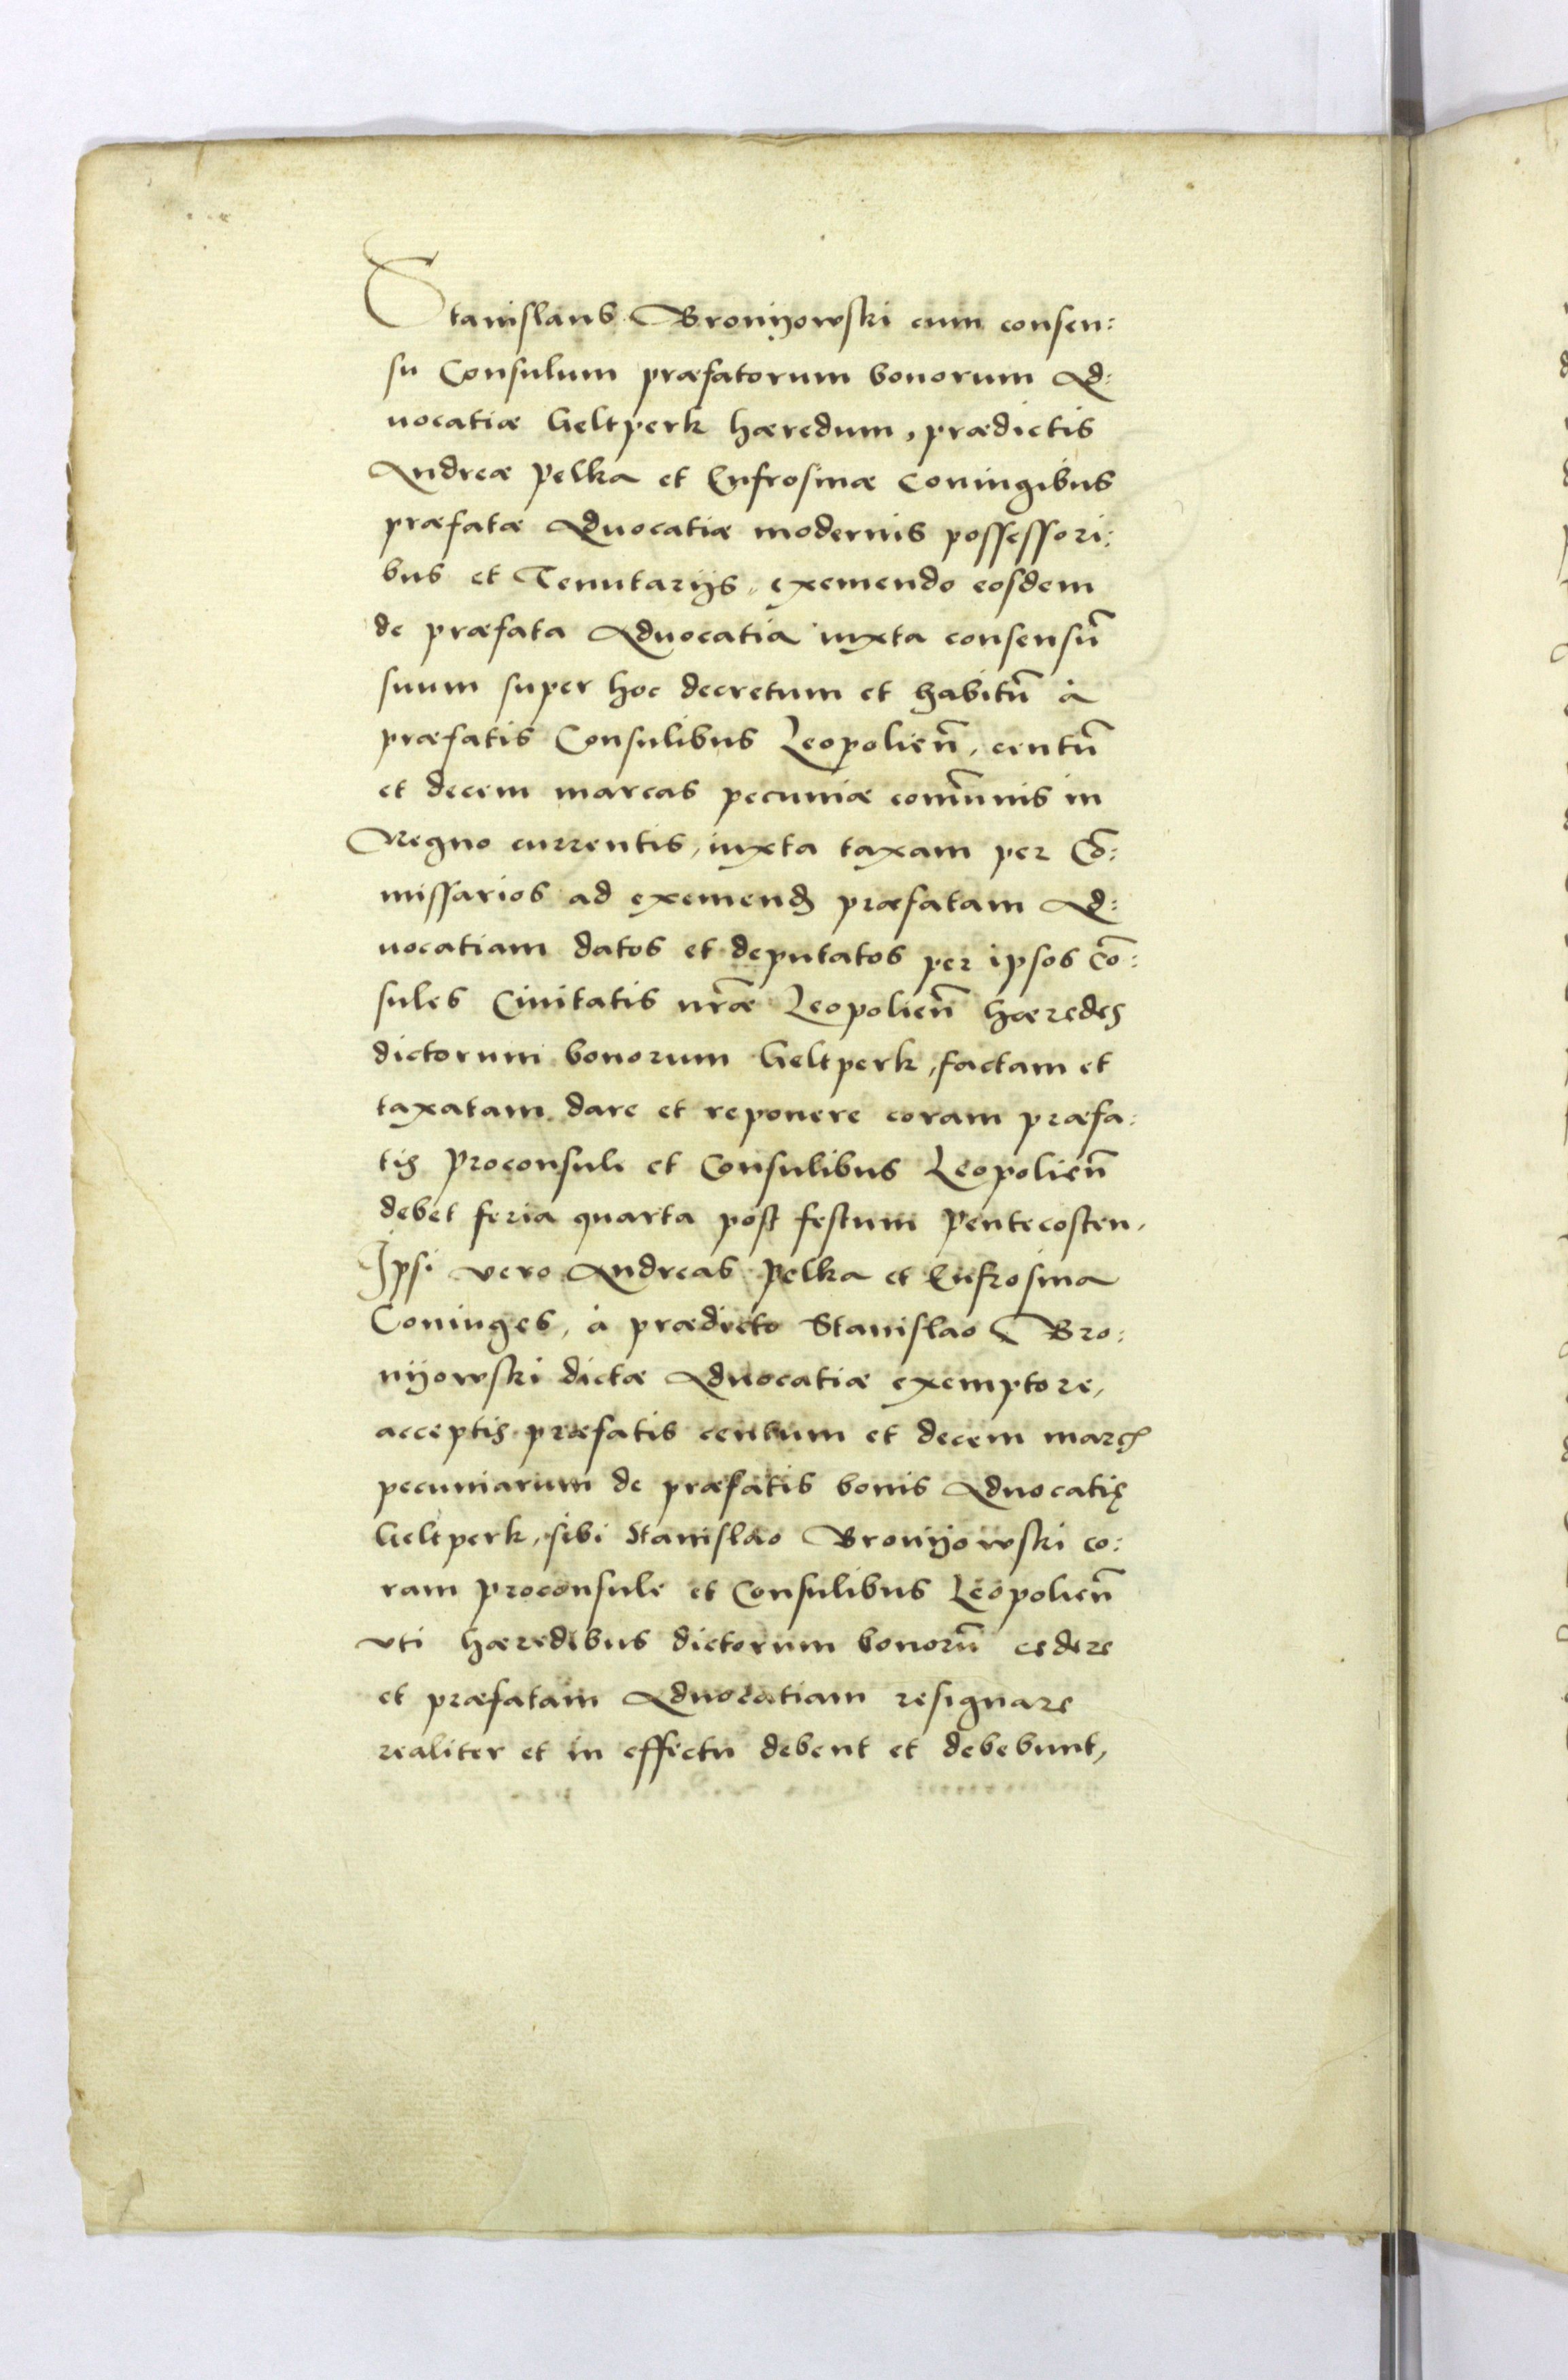 Stanislaus Bronijowski cum consen:
su Consulum præfatorum bonorum Ad:
uocatiæ Geltperk hæredum, prædictis
Andreæ Pelka et Eufrosinæ Coniugibus
præfatæ Aduocatiæ modernis possessori:
bus et Tenutarijs, exemendo eosdem
de præfata Aduocatia iuxta consensū
suum super hoc decretum et habitū à
præfatis Consulibus Leopolieñ, centū
et decem marcas pecuniæ com̄unis in
Regno currentis, iuxta taxam per Cō:
missarios ad exemend præfatam Ad:
uocatiam datos et deputatos per ipsos cō:
sules Ciuitatis nr̄æ Leopolieñ hæredes
dictorum bonorum Geltperk, factam et
taxatam dare et reponere coram præfa:
tis Proconsuli et Consulibus Leopolieñ
debet feria quarta post festum Pentecosten.
Ipsi vero Andreas Pelka et Eufrosina
Coniuges, à prædicto Stanislao Bro:
nijowski dictæ Aduocatiæ exemptore,
acceptis præfatis centum et decem marc
pecuniarum de præfatis bonis Aduocatię
Geltperk, sibi Stanislao Bronijowski co:
ram proconsule et Consulibus Leopolieñ
vti hæredibus dictorum bonorū cedere
et præfatam Aduocatiam resignare
realiter et in effectu debent et debebunt,